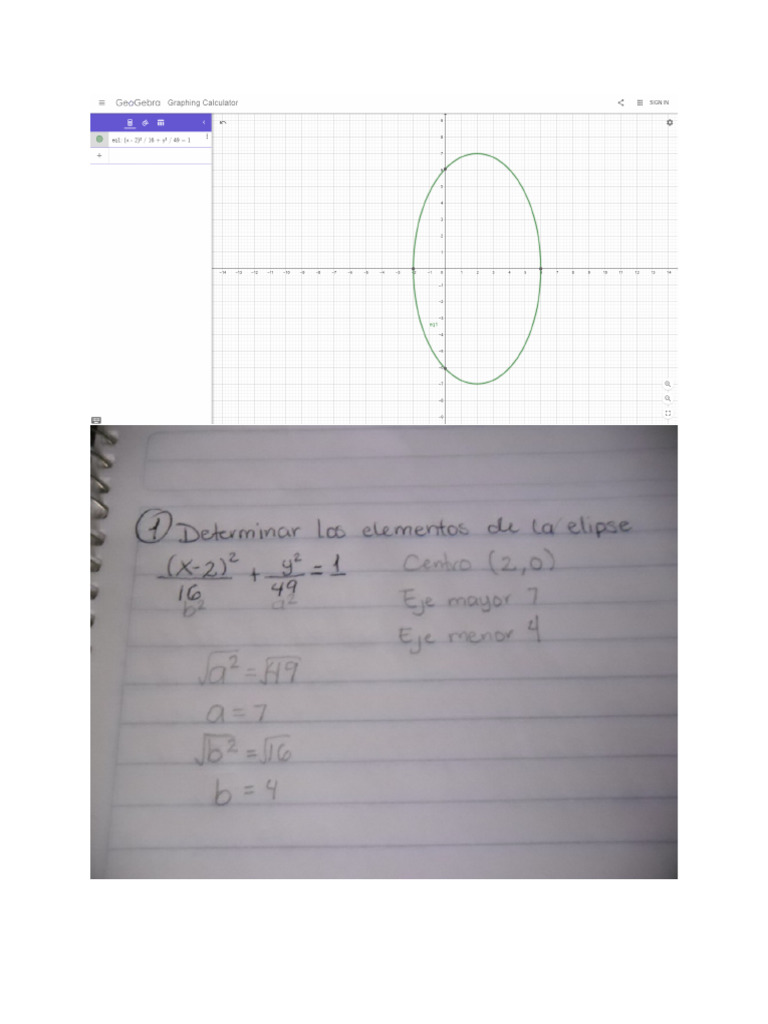 GeoGebra Graphing Calculator
SIGN IN
eq1: (x - 2)² / 16 + y² / 49 = 1
9
7
5
4
3
2
1
-14 -13 -12 -11 -10 -9 -8 -7 -6 -5 -4 -3 -2 -1 0 1 2 3 4 5 6 7 8 9 10 11 12 13 14
-1
-2
-3
eq1
-4
-5
-7
-8
-9
① Determinar los elementos de la elipse
(x-2)²/16 + y²/49 = 1 Centro (2,0)
b² a² Eje mayor 7
Eje menor 4
√a² = √49
a = 7
√b² = √16
b = 4